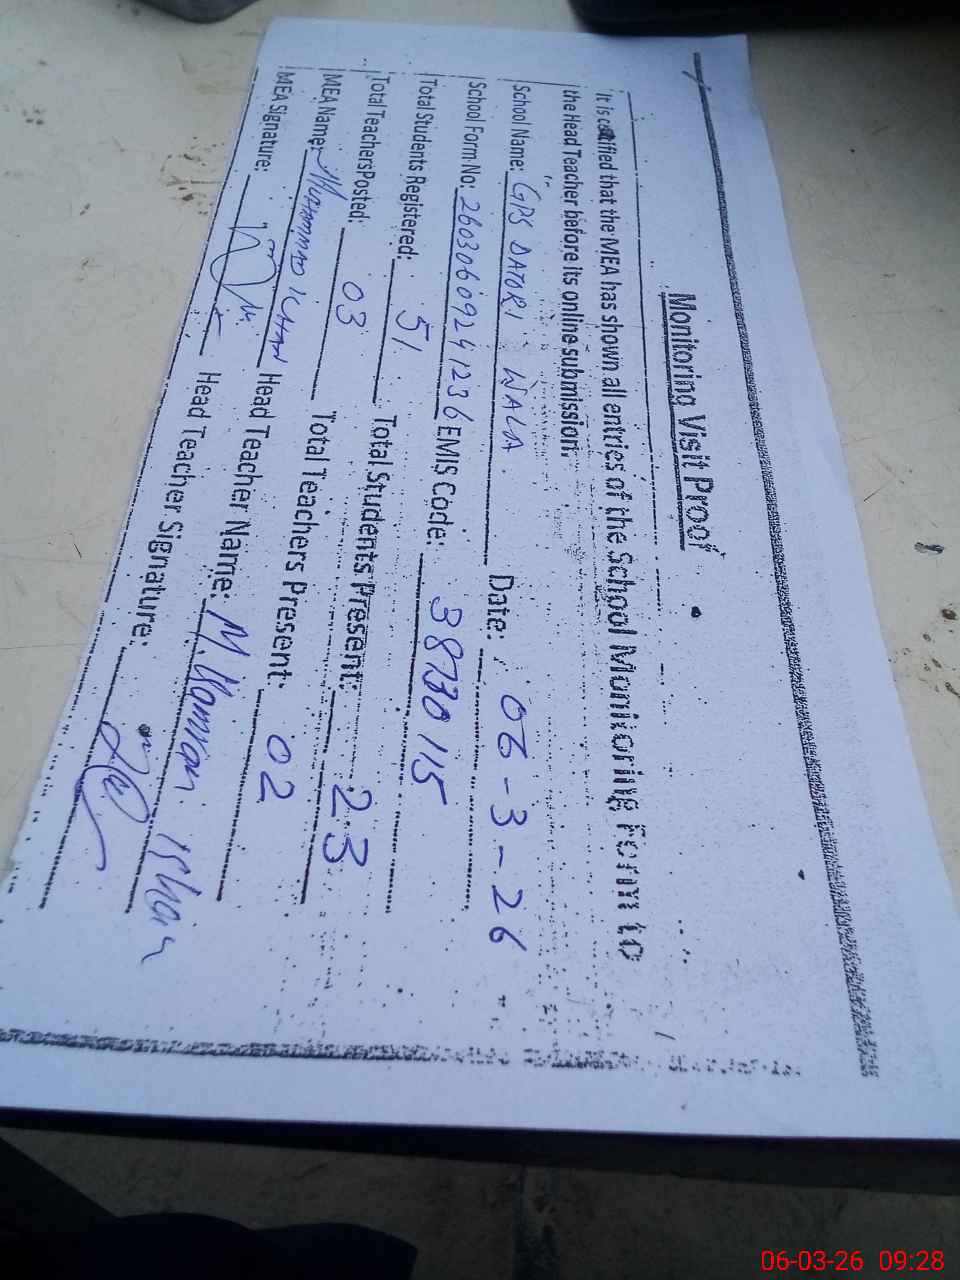 Monitoring Visit Proof
It is certified that the MEA has shown all entries of the School Monitoring Form to
the Head Teacher before its online submission.
School Name: GPS DATORI WALA Date: 06-3-26
School Form No: 26030609241236 EMIS Code: 38730115
Total Students Registered: 51 Total Students Present: 23
Total Teachers Posted: 03 Total Teachers Present: 02
MEA Name: MUHAMMAD KHAN Head Teacher Name: M.
MEA Signature: Head Teacher Signature:
06-03-26 09:28